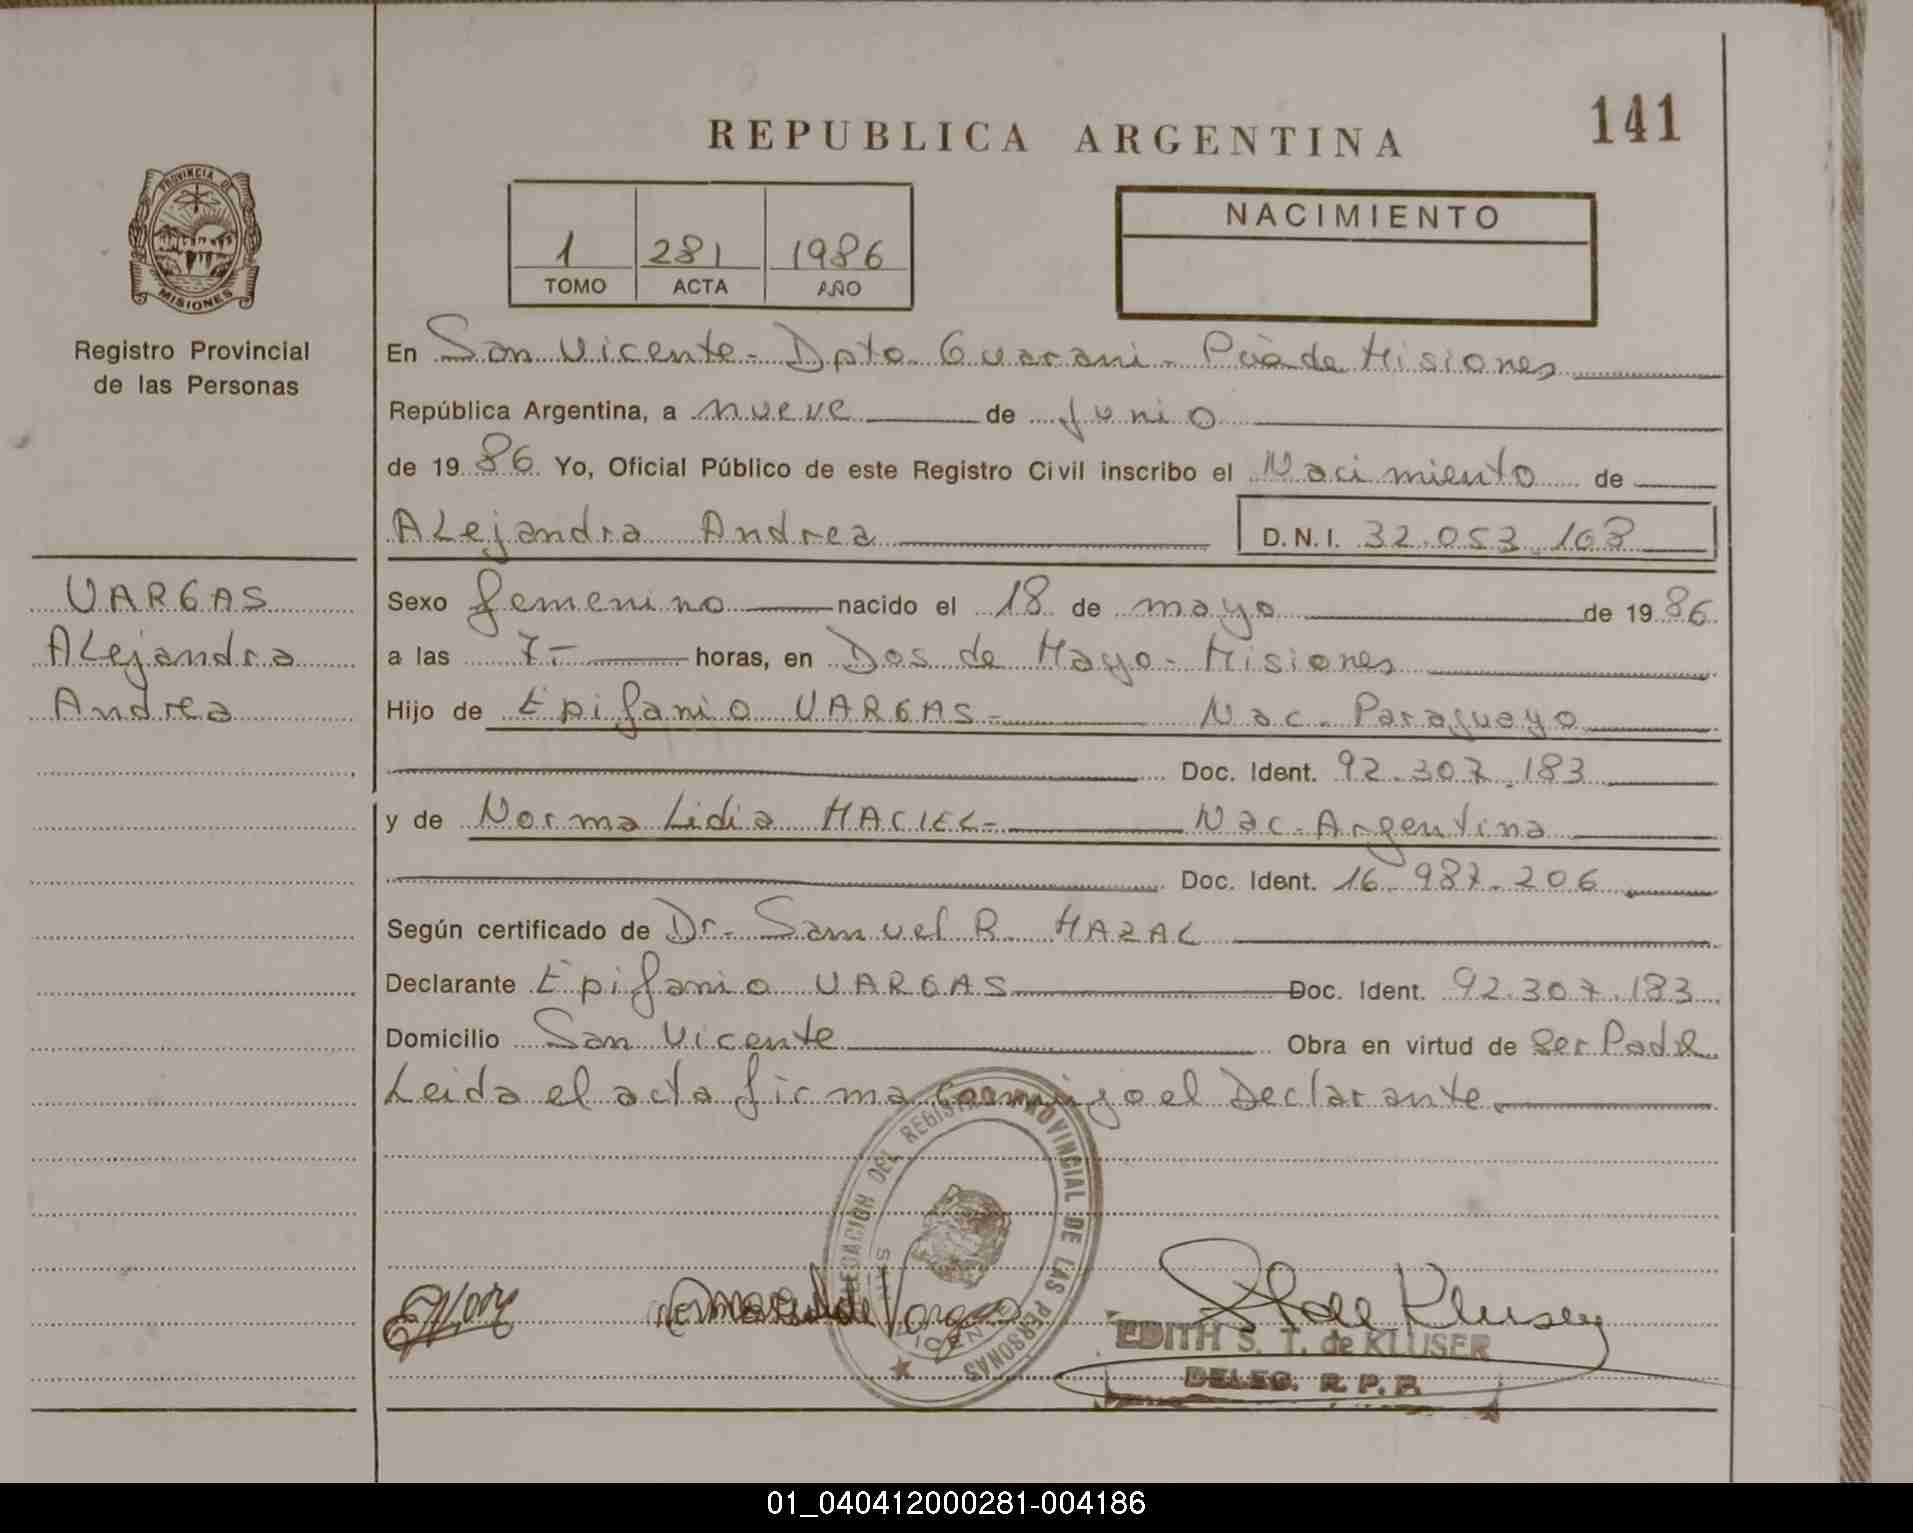 141
REPUBLICA ARGENTINA
PROVINCIA DE
MISIONES
Registro Provincial
de las Personas
1 281 1986
TOMO ACTA AÑO
NACIMIENTO
En San Vicente - Dpto Guarani - Pcia de Misiones
República Argentina, a nueve de Junio
de 1986 Yo, Oficial Público de este Registro Civil inscribo el Nacimiento de
ALejandra Andrea D.N.I. 32.053.168
VARGAS
ALejandra
Andrea
Sexo femenino nacido el 18 de mayo de 1986
a las 7- horas, en Dos de Mayo - Misiones
Hijo de Epifanio VARGAS - Nac. Paraguayo
Doc. Ident. 92.307.183
y de Norma Lidia MACIEL - Nac. Argentina
Doc. Ident. 16.987.206
Según certificado de Dr. Samuel R. MAZAL
Declarante Epifanio VARGAS Doc. Ident. 92.307.183
Domicilio San Vicente Obra en virtud de Ser Padre
Leida el acta firma conmigo el Declarante.
DELEGACION DEL REGISTRO PROVINCIAL DE LAS PERSONAS
EDITH S. T. de KLUSER
DELEG. R. P. P.
01_040412000281-004186